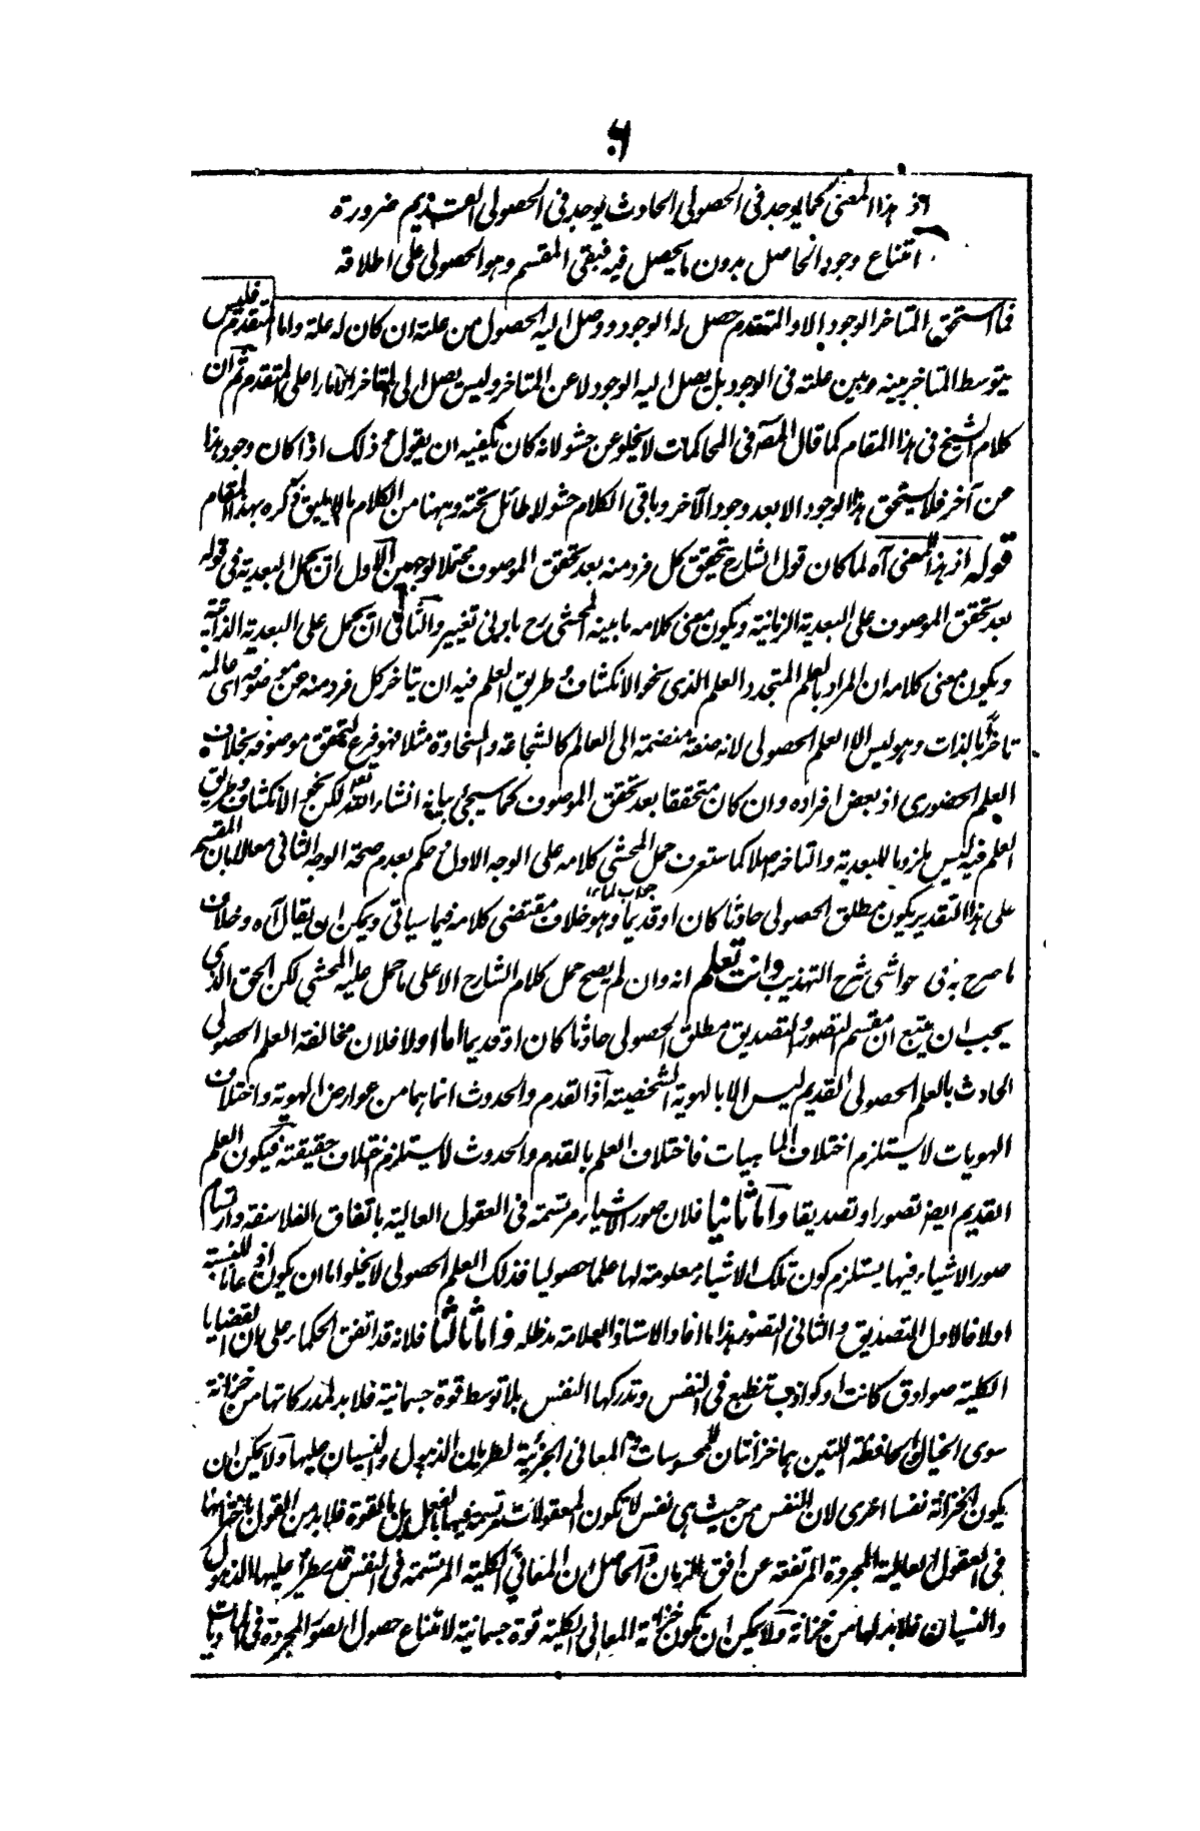 ٦
اذ هذا المعنى كما يوجد فى الحصولى الحادث يوجد فى الحصولى القديم ضرورة
امتناع وجود الحاصل بدون ما يحصل فيه فبقى المقسم وهو الحصولى على اطلاقه
فما استحق المتاخر الوجود الا والمتقدم حصل له الوجود ووصل اليه الحصول من علته ان كان له علة واما المتقدم فليس
يتوسط المتاخر بينه وبين علته فى الوجود بل يصل اليه الوجود لا عن المتاخر وليس يصل الى المتاخر الا مارا على المتقدم ثم ان
كلام الشيخ فى هذا المقام كما قال المصـ فى المحاكمات لا يخلو عن حشو لانه كان يكفيه ان يقول ذلك اذا كان وجود هذا
عن آخر فلا يستحق هذا الوجود الا بعد وجود الآخر وباقى الكلام حشو لا طائل تحته وههنا من الكلام ما لا يليق ذكره بهذا المقام
قوله اذ هذا المعنى آه لما كان قول الشارح يتحقق كل فرد منه بعد تحقق الموصوف محتملا لوجهين الاول ان يحمل البعدية فى قوله
بعد تحقق الموصوف على البعدية الزمانية ويكون معنى كلامه ما بينه المحشى رح بادنى تغيير والثانى ان يحمل على البعدية الذاتية
ويكون معنى كلامه ان المراد بالعلم المتجدد العلم الذى نحو الانكشاف وطريق العلم فيه ان يتاخر كل فرد منه عن موصوفه اى عالمه
تاخرا بالذات وهو ليس الا العلم الحصولى لانه صفة منضمة الى العالم كالشجاعة والسخاوة مثلا فهو فرع لتحقق موصوفه بخلاف
العلم الحضورى اذ بعض افراده وان كان متحققا بعد تحقق الموصوف كما سيجئ بيانه انشاء الله تعالى لكن نحو الانكشاف وطريق
العلم فيه ليس ملزوما للبعدية والتاخر اصلا كما ستعرف حمل المحشى كلامه على الوجه الاول حكم بعدم صحة الوجه الثانى معللا بان المقسم
على هذا التقدير يكون مطلق الحصولى حادثا كان او قديما وهو خلاف مقتضى كلامه فيما سياتى ويمكن ان يقال آه وخلاف
جواب لما ١٢
ما صرح به فى حواشى شرح التهذيب وانت تعلم انه وان لم يصح حمل كلام الشارح الا على ما حمل عليه المحشى لكن الحق الذى
يجب ان يتبع ان مقسم التصور والتصديق مطلق الحصولى حادثا كان او قديما اما اولا فلان مخالفة العلم الحصولى
الحادث بالعلم الحصولى القديم ليس الا بالهوية الشخصية اذ القدم والحدوث انما هما من عوارض الهوية واختلاف
الهويات لا يستلزم اختلاف الماهيات فاختلاف العلم بالقدم والحدوث لا يستلزم اختلاف حقيقته فيكون العلم
القديم ايضـ تصورا وتصديقا واما ثانيا فلان صور الاشياء مرتسمة فى العقول العالية باتفاق الفلاسفة وارتسام
صور الاشياء فيها يستلزم كون تلك الاشياء معلومة لها علما حصوليا فذلك العلم الحصولى لا يخلو اما ان يكون اذعانا للنسبة
اولا فالاول التصديق والثانى التصور هذا ما افاد الاستاذ العلامة مد ظله واما ثالثا فلانه قد اتفق الحكماء على ان القضايا
الكلية صوادق كانت او كواذب تنطبع فى النفس وتدركها النفس بلا توسط قوة جسمانية فلا بد لمدركاتها من خزانة
سوى الخيال والحافظة اللتين هما خزانتان للمحسوسات والمعانى الجزئية لطريان الذهول والنسيان عليها ولا يمكن ان
يكون الخزانة نفسا اخرى لان النفس من حيث هى نفس لا تكون المعقولات مرتسمة فيها بالفعل بل بالقوة فلا بد من القول بانتهائها
فى العقول العالية المجردة المرتفعة عن افق الزمان والحاصل ان المعانى الكلية المرتسمة فى النفس قد يطرأ عليها الذهول
والنسيان فلا بد لها من خزانة ولا يمكن ان تكون خزانة المعانى الكلية قوة جسمانية لامتناع حصول الصور المجردة فى الماديات